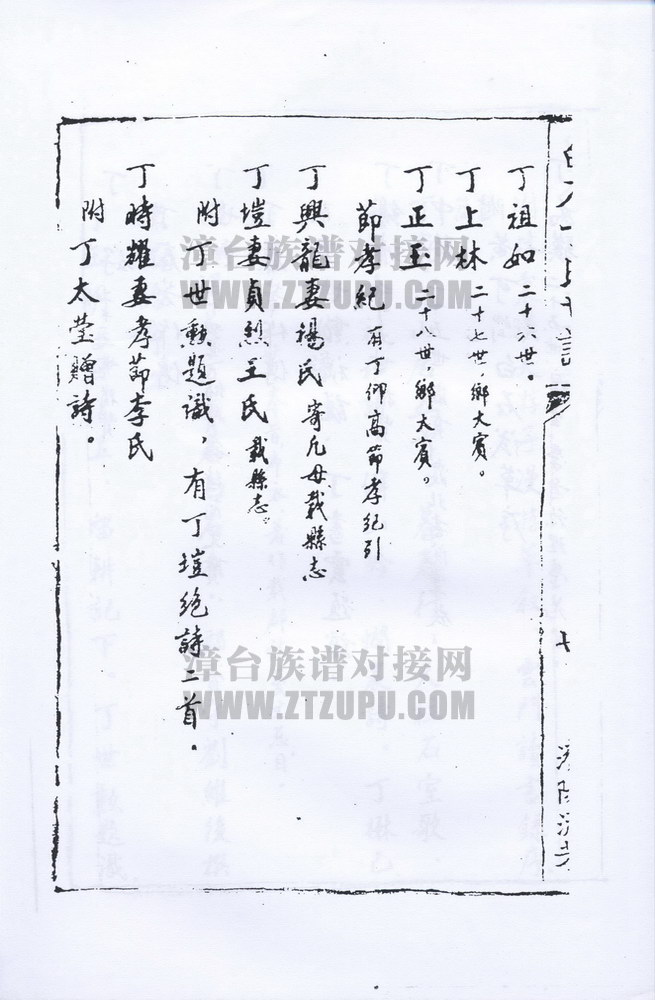 丁祖如二十六世。
丁上林二十七世，鄉大賓。
丁正玉二十八世，鄉大賓。
節孝紀有丁仰高節孝紀引
丁興龍妻湯氏寄凡母載縣志
丁塏妻貞烈王氏載縣志。
附丁世勳題識，有丁塏絕詩二首。
丁時耀妻孝節李氏
附丁太瑩贈詩。
七
漳台族谱对接网
WWW.ZTZUPU.COM
漳台族谱对接网
WWW.ZTZUPU.COM